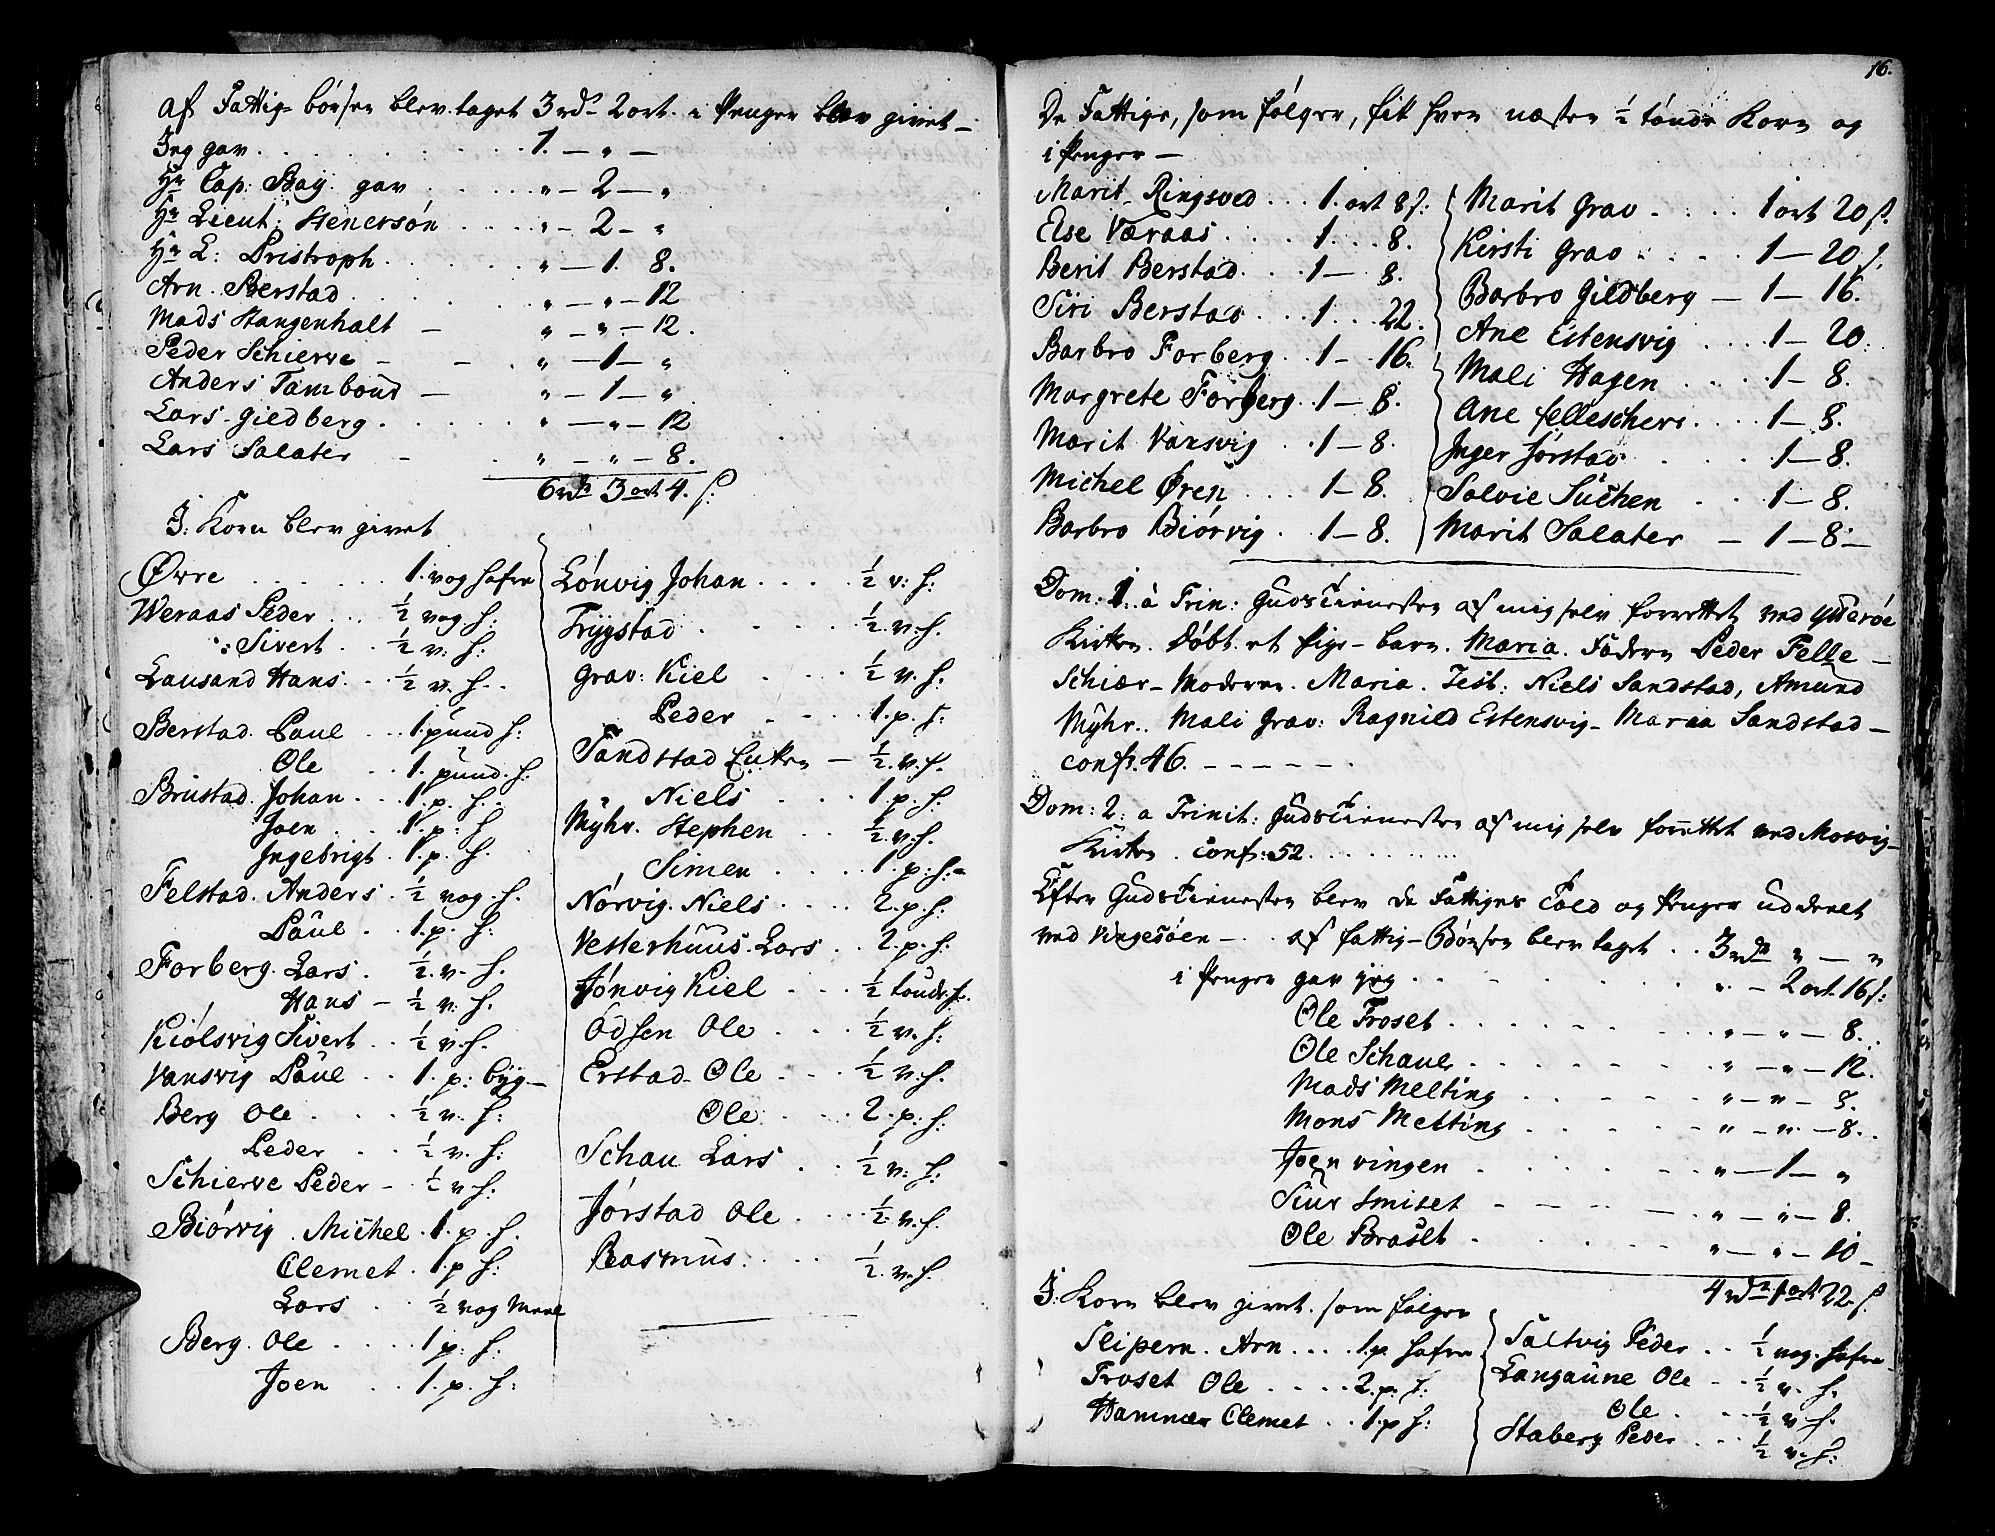 af Fattig-bórsen blev taget 3 rd. 2 ort. i Penger blev givet -
Jeg gav . . . . . . . . . . 1. - „ -
Hr Cap: Bay gav . . . . . „ - 2 - „
Hr Lieut: Henersón . . . . „ - 2 - „
Hr L: Dristroph . . . . . „ - 1. 8.
Arn. Berstad . . . . . . „ - „ - 12
Mads Hangenhalt - „ - „ - 12.
Peder Schierve - - . „ - 1 - „
Anders Tambour - „ - 1 - „
Lars Gieldberg . . . . . . „ - „ - 12
Lars Salater - . „ - „ - 8.
6 rd. 3 ort 4. s:
J: Korn blev givet
Øvre . . . . . . 1. vog hafre
Weraas Peder . . . ½ vog h:
„: Sivert . . ½ v: h:
Lausand Hans . . ½ v. h. .
Berstad. Paul . . 1. pund h:
Ole . . 1. pund. h:
Brustad. Johan . . . 1. p. h. .
Joen . . . 1. p: h
Ingebrigt . 1. p. h.
Felstad. Anders . ½ vog h.
Paul . . 1. p. h:
Forberg. Lars . ½. v. h.
Hans - ½ v. h.
Kiólsvig Sivert . . ½ v. h.
Vansvig Paul . . 1. p: byg -
Berg Ole . . . . ½ v. h:
Peder . . ½ v. h:
Schierve Peder - . ½ v h:
Biórvig. Michel . 1. p. h.
Clemet . 1. p h:
Lars . . ½ vog Meel
Berg. Ole . . . . 1 p: h.
Joen . . 1. p. h:
Lónvig Johan . . . . ½ v: h:
Trygstad . - - - ½. v. h.
Grav: Kiel . . . . ½ v. h.
Peder - - . . 1. p. h:
Sandstad Enken - ½. v. h.
„ Niels . . . . 1. p. h.
Myhr. Stephen . . ½. v. h.
Simen . . . . 1. p: h. -
Nórvig. Niels . . . . 2. p. h:
Vesterhuus. Lars . . 2. p. h:
Jónvig Kiel . . . ½ tónde. h.
Odsen Ole . . . . ½ v. h:
Erstad. Ole . . . ½ v. h.
Ole . . . . 2. p: h:
Schau Lars . . . ½ v: h:
Jórstad Ole . . . . ½. v. h.
Rasmus . . . . . ½. v. h.
16.
De Fattige, som fólger, fik hver næsten ½ tónde Korn og
i Penger -
Marit Ringsved . . . 1. ort 8 s:
Else Væraas . . . . 1. . . 8.
Berit Berstad . . . 1 - 8.
Siri Berstad . . . 1. . . 22.
Barbro Forberg . . 1 - 16.
Margrete Forberg . 1 - 8.
Marit Vansvig . . 1 - 8.
Michel Øren . . . 1 - 8.
Barbro Biórvig . . 1 - 8.
Marit Grav . . . . 1 ort 20 s.
Kirsti Grav . . . . 1 - 20 s.
Barbro Gieldberg - 1 - 16.
Ane Estensvig . . . . 1 - 20.
Mali Hagen . . . . 1 - 8.
Ane felleschers . . . . 1 - 8.
Inger Jórstad . . . 1 - 8.
Solvie Suchen . . . 1 - 8.
Marit Salater - 1 - 8 -
Dom: 1. à Trin: Gudstienesten af mig selv forrettet ved Ytteróe
Kirken. Dóbt et Pige-barn. Maria. Faderen Peder Felle-
Schiær - Moderen. Maria. Test: Niels Sandstad, Amund
Myhr. Mali Grav: Ragnild Estensvig - Maria Sandstad -
confs. 46. - - - - - .
Dom: 2. a Trinit: Gudstienesten af mig selv forrettet ved Mosvig-
Kirken. confs: 52. . . . . . .
Efter Gudstienesten blev de Fattiges Told og Penger uddeelt
ved Vingesóen - . . af fattig-Bórsen blev taget . . 3 rd. „ - „
i Penger gav jeg . . . . . . „ - 2 ort. 16 s:
Ole Froset . . . . . . „ - „ - 8. .
Ole Schauer . . . . . . „ - „ - 12.
Mads Melting . . . . . „ - „ - 8.
Mons Melting . . . . . „ - „ - 8. .
Joen Vingen . . . . . „ - 1 - „
Siur Smiset - - - - - „ - „ - 8.
Ole Braset . . . . . . „ - „ - 10 -
4 rd. 1 ort 22 s.
J: Korn blev givet. som fólger
Slipern. Arn . . . . 1. p. hafre
Froset Ole . . . . 2. p. h:
Hammer Clemet . . 1. p h:
Saltvig Peder . . ½ vog. hafre -
Langaune Ole . . ½ v. h.
Ole . . . ½ v. h.
Staberg Peder . . . ½ v. h: